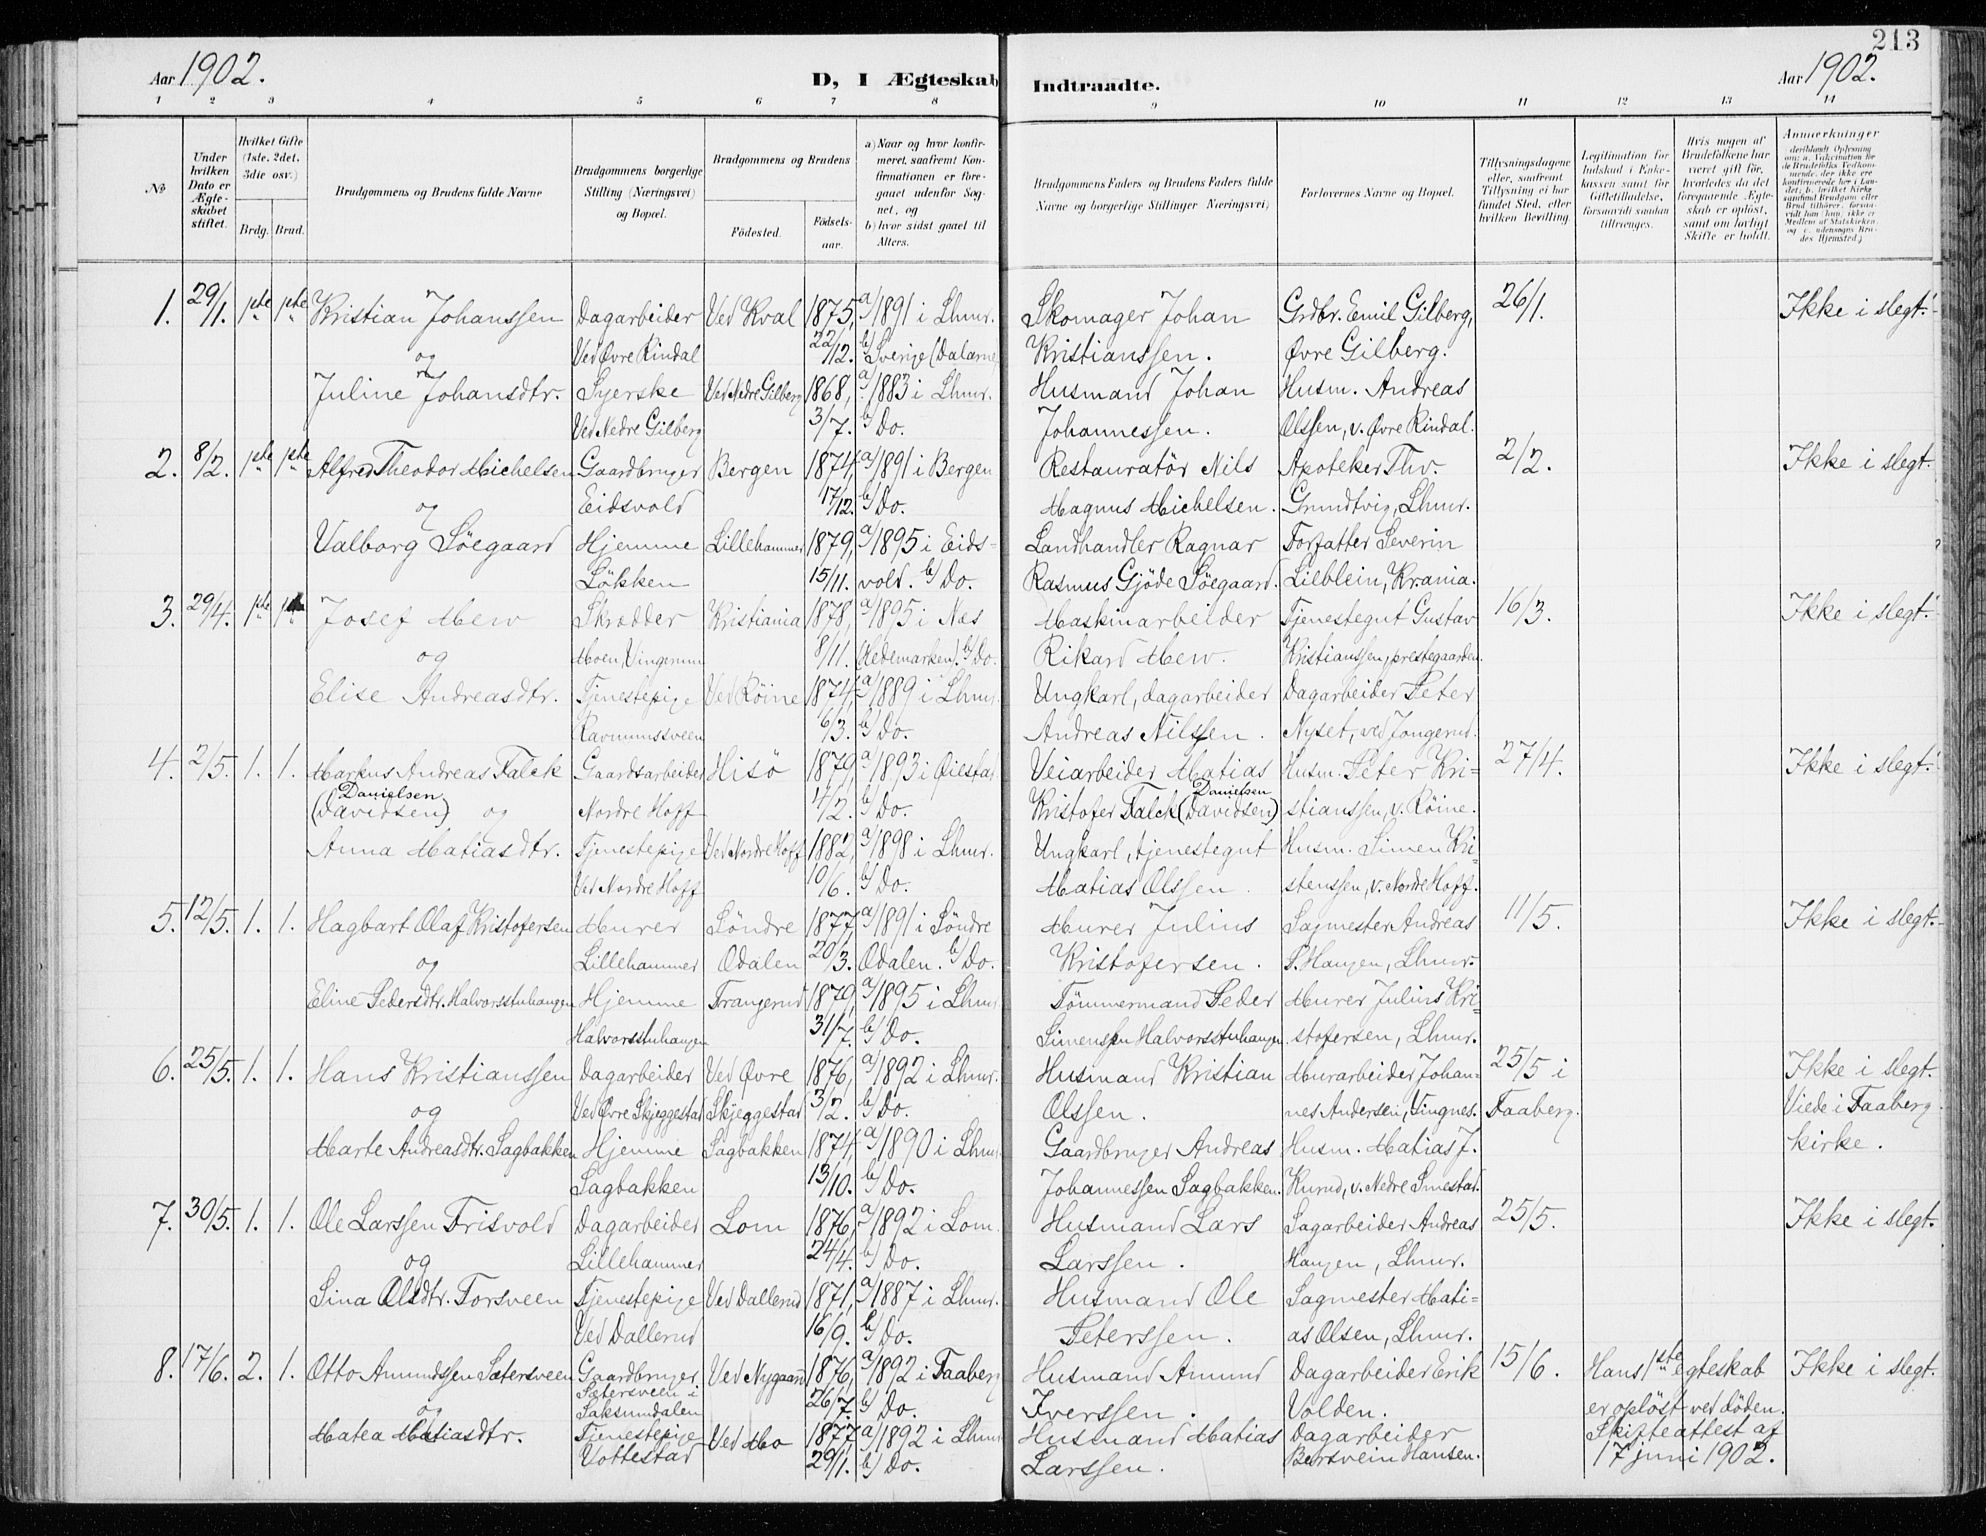 213
Aar 1902.
D, I Ægteskab Indtraadte.
Aar 1902.
1 2 3 4 5 6 7 8 9 10 11 12 13 14
No
Under hvilken Dato er Ægteskabet stiftet.
Hvilket Gifte (1ste, 2det, 3die osv.)
Brdg. Brud.
Brudgommens og Brudens fulde Navne
Brudgommens borgerlige Stilling (Næringsvei) og Bopæl.
Brudgommens og Brudens
Födested.
Födselsaar.
a) Naar og hvor konfirmeret, saafremt Konfirmationen er foregaaet udenfor Sognet, og
b) hvor sidst gaaet til Alters.
Brudgommens Faders og Brudens Faders fulde Navne og borgerlige Stillinger (Næringsvei)
Forlovernes Navne og Bopæl.
Tillysningsdagene eller, saafremt Tillysning ei har fundet Sted, efter hvilken Bevilling
Legitimation for Indskud i Enkekassen samt for Giftetilladelse, forsaavidt saadan tiltrænges.
Hvis nogen af Brudefolkene har været gift før, hvorledes da det foregaaende Ægteskab er opløst, samt om lovligt Skifte er holdt.
Anmerkninger
1. 29/1. 1ste 1ste Kristian Johanssen Dagarbeider Ved Kval 1875, a/1891 i Lhmr. Skomager Johan Grdbr. Emil Gilberg, 26/1. Ikke i slegt.
og Ved Øvre Rindal 22/12. b/ Sverige (Dalarne Kristianssen. Øvre Gilberg.
Juline Johansdtr. Syerske Ved Nedre Gilberg 1868, a/1883 i Lhmr. Husmand Johan Husm. Andreas
Ved Nedre Gilberg 3/7. b/ Do. Johannessen. Olssen, v. Øvre Rindal.
2. 8/2. 1ste 1ste Alfred Theodor Michelsen Gaardbruger Bergen 1874, a/1891 i Bergen Restauratör Nils Apoteker Thv. 2/2. Ikke i slegt.
og Eidsvold 17/12. b/ Do. Magnus Michelsen. Grundtvig, Lhmr.
Valborg Söegaard Hjemme Lillehammer 1879, a/1895 i Eids- Landhandler Ragnar Forfatter Severin
Lökken 15/11. vold. b/ Do. Rasmus Gjöde Söegaard. Lieblein, Kr.ania.
3. 29/4. 1ste Josef Mew Skrædder Kristiania 1878, a/1895 i Næs Maskinarbeider Tjenestegut Gustav 16/3. Ikke i slegt.
og Moen, Vingerum 8/11. Hedemarken). b/ Do. Rikard Mew. Kristianssen, prestegaarden.
Elise Andreasdtr. Tjenestepige Ved Röine 1874, a/1889 i Lhmr. Ungkarl, dagarbeider Dagarbeider Peter
6/3. b/ Do. Andreas Nilssen. Nyset, ved Jongerud.
4. 2/5. 1. 1. Markus Andreas Falck Gaardsarbeider Hisö 1879, a/1893 i Øiestad Veiarbeider Matias Husm. Peter Kri- 27/4. Ikke i slegt.
Danielsen
(Davidsen) og Nordre Hoff 4/2. b/ Do. Kristofer Falck (Davidsen) Danielsen stianssen, v. Röine.
Anna Matiasdtr. Tjenestepige Ved Nordre Hoff 1882, a/1898 i Lhmr. Ungkarl, tjenestegut Husm. Simen Kri-
Ved Nordre Hoff 10/6. b/ Do. Matias Olssen. stenssen, v. Nordre Hoff.
5. 12/5. 1. 1. Hagbart Olaf Kristofersen Murer Söndre 1877, a/1891 i Söndre Murer Julius Sagmester Andreas 11/5. Ikke i slegt.
og Lillehammer Odalen 20/3. Odalen. b/ Do. Kristofersen. P. Haugen, Lhmr.
Eline Pedersdtr. Halvorsstuhaugen Hjemme Frangerud 1879, a/1895 i Lhmr. Tömmermand Peder Murer Julius Kri-
Halvorsstuhaugen 31/7. b/ Do. Simenssen Halvorsstuhaugen. stofersen, Lhmr.
6. 25/5. 1. 1. Hans Kristianssen Dagarbeider Ved Øvre 1876, a/1892 i Lhmr. Husmand Kristian Murarbeider Johan- 25/5 i Ikke i slegt.
og Ved Øvre Skjeggestad Skjeggestad 3/2. b/ Do. Olssen. nes Andersen, Vingnes. Faaberg. Viede i Faaberg
Marte Andreasdtr. Sagbakken Hjemme Sagbakken 1874, a/1890 i Lhmr. Gaardbruger Andreas Husm. Matias J. kirke.
Sagbakken 13/10. b/ Do. Johannessen Sagbakken. Kurud, v. Nedre Smestad.
7. 30/5. 1. 1. Ole Larssen Frisvold Dagarbeider Lom 1876, a/1892 i Lom. Husmand Lars Sagarbeider Andreas 25/5. Ikke i slegt.
og Lillehammer 24/4. b/ Do. Larssen. Haugen, Lhmr.
Sina Olsdtr. Forsveen Tjenestepige Ved Dallerud 1871, a/1887 i Lhmr. Husmand Ole Sagmester Mati-
Ved Dallerud 16/9. b/ Do. Peterssen. as Olsen, Lhmr.
8. 17/6. 2. 1. Otto Amundssen Sætersveen Gaardbruger Ved Nygaard 1876, a/1892 i Faaberg Husmand Amund Dagarbeider Erik 15/6. Hans 1ste egteskab Ikke i slegt.
og Sætersveen i Saksumdalen 26/7. b/ Do. Iverssen. Volden. er oplöst ved döden.
Matea Matiasdtr. Tjenestepige Ved Mo 1877 a/1892 i Lhmr. Husmand Matias Dagarbeider Skifteattest af
Vottestad 29/1. b/ Do. Larssen. Bersvein Hansen. 17 juni 1902.